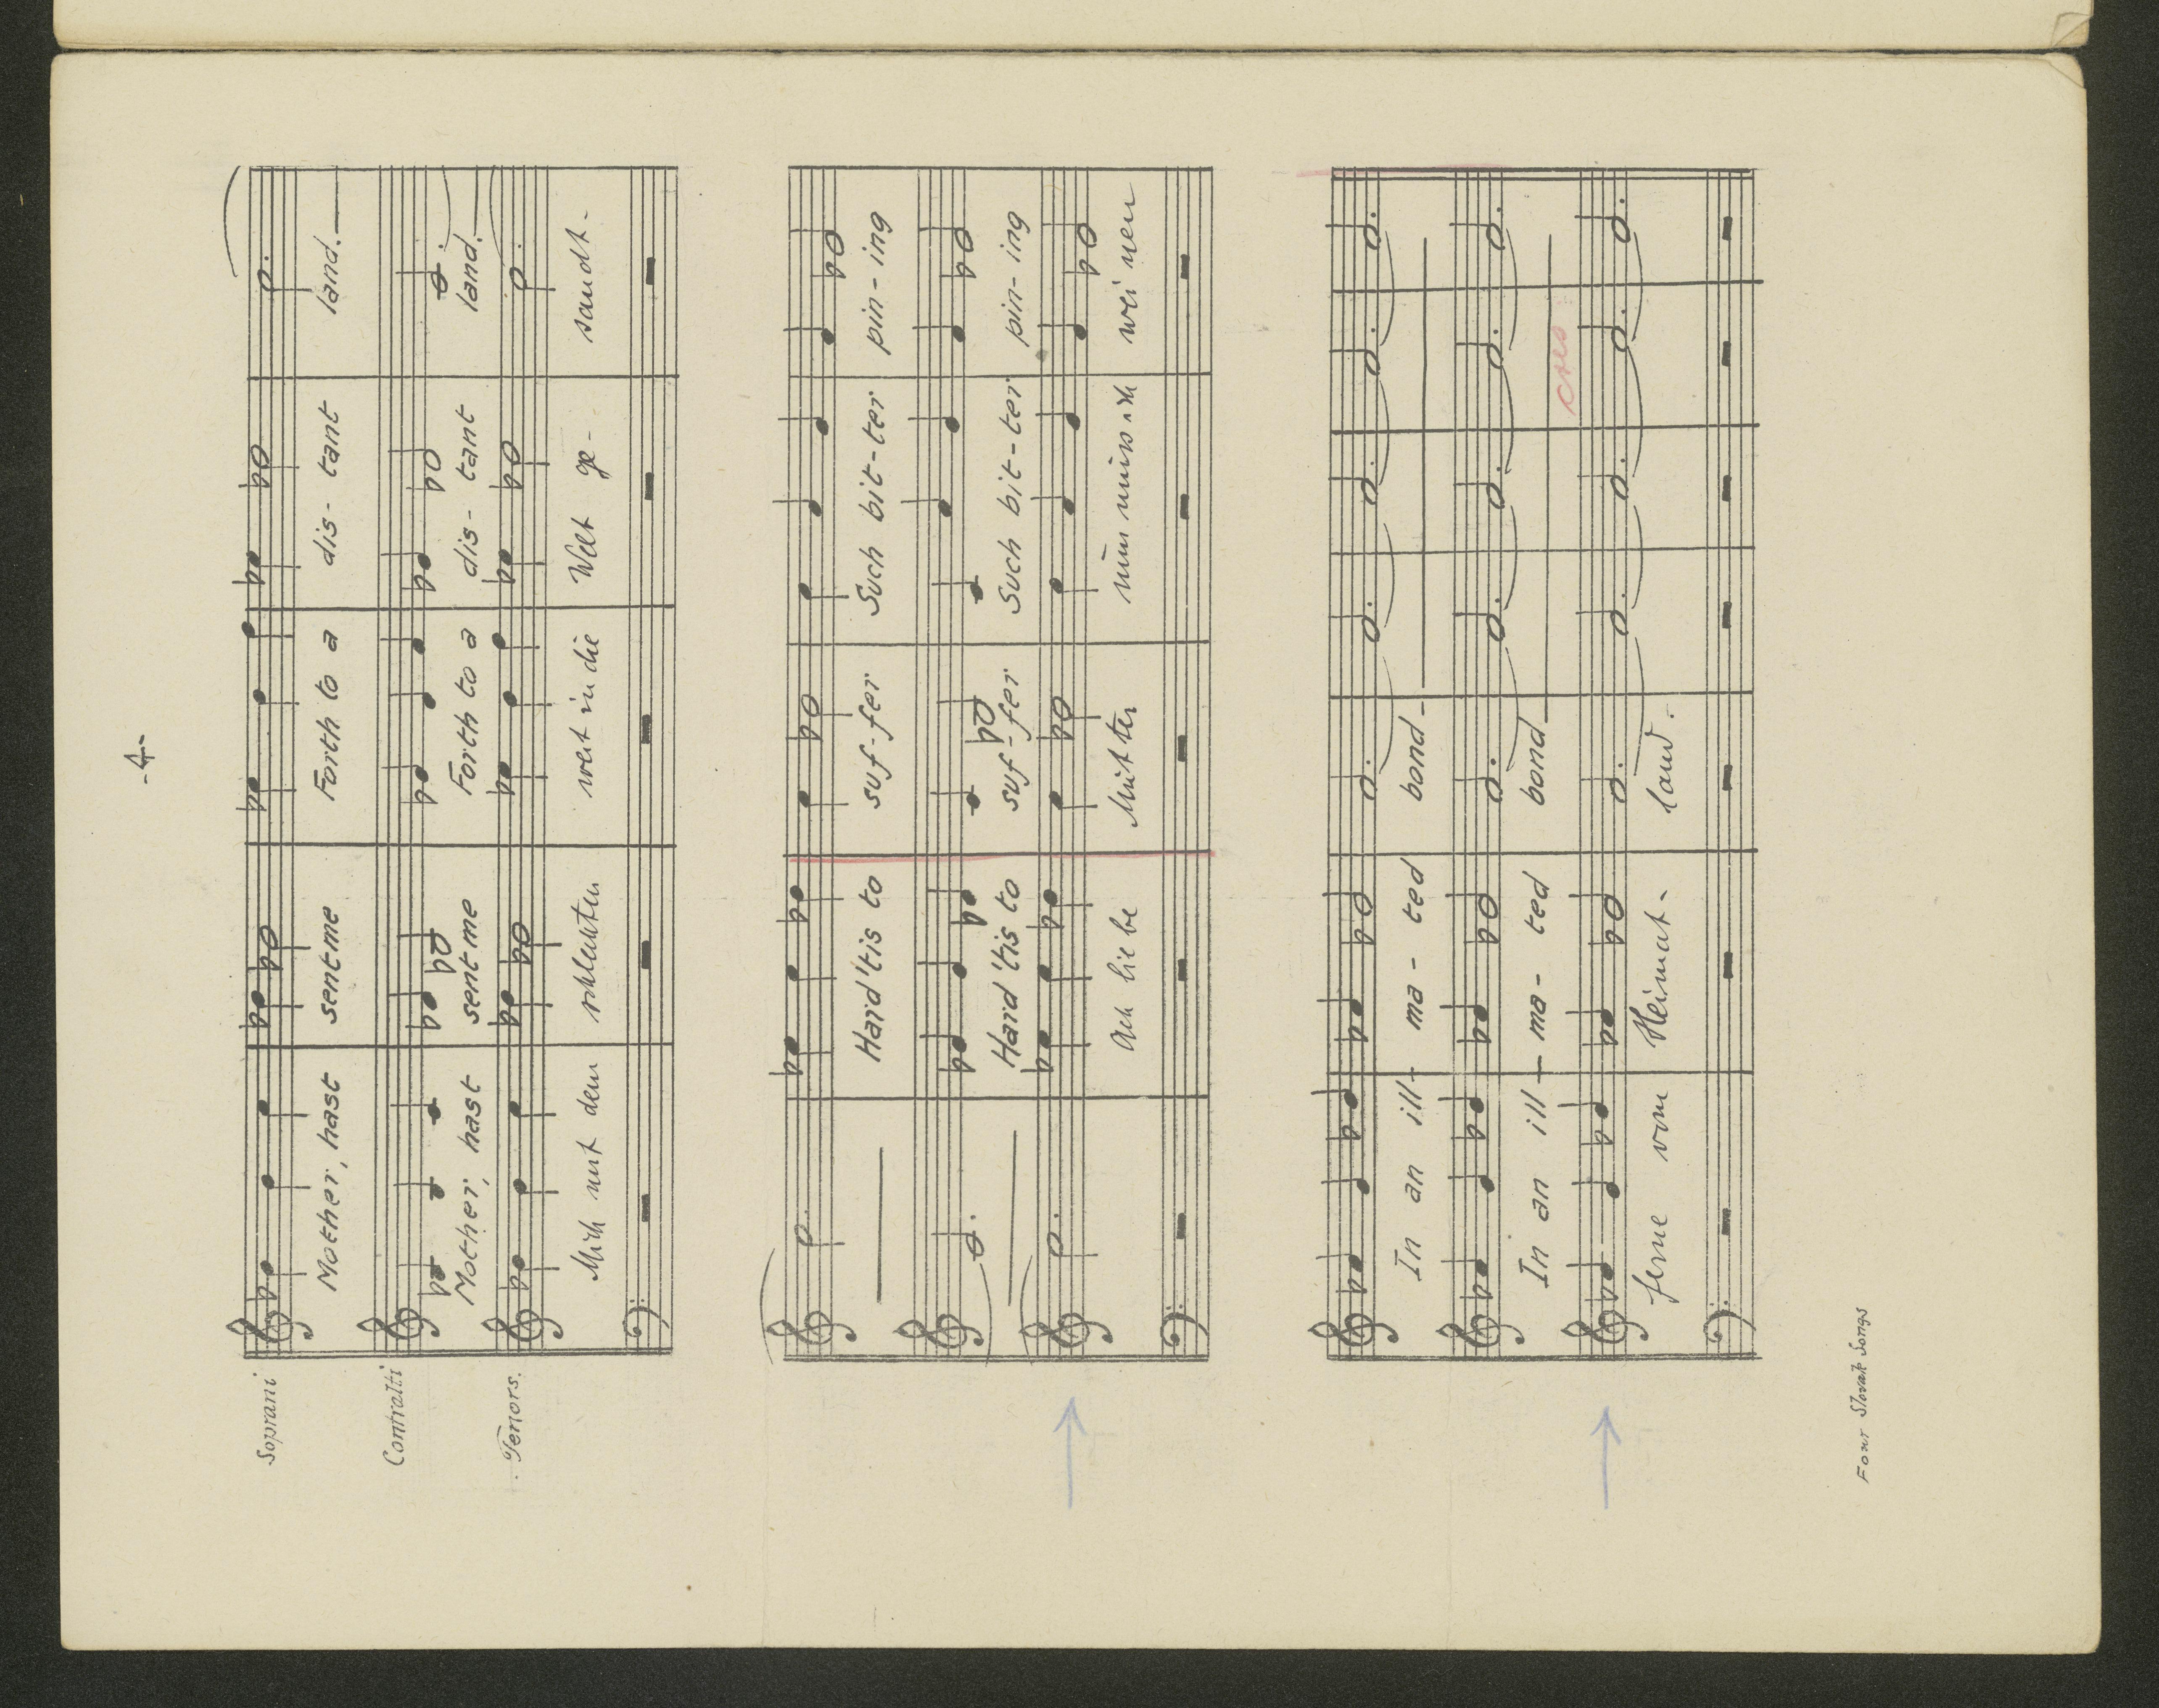 -4-
Soprani
Mother, hast sent me Forth to a dis- tant land.
Contralti
Mother, hast sent me Forth to a dis- tant land.
Tenors.
Mich mit dem schlechten weit in die Welt ge- sandt-
Hard 'tis to suf-fer Such bit-ter pin-ing
Hard 'tis to suf-fer Such bit-ter pin-ing
Ach liebe Mutter nun muss ich wei nen
In an ill- ma- ted bond-
In an ill- ma- ted bond
cres
ferne vom Heimat- land.
Four Slovak Songs